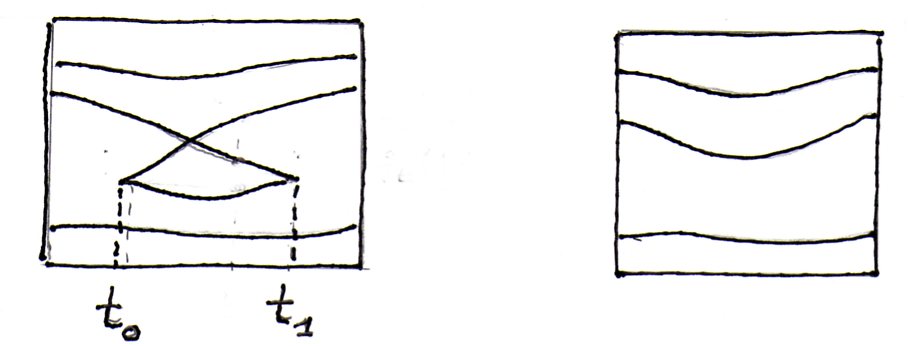 t₀ t₁